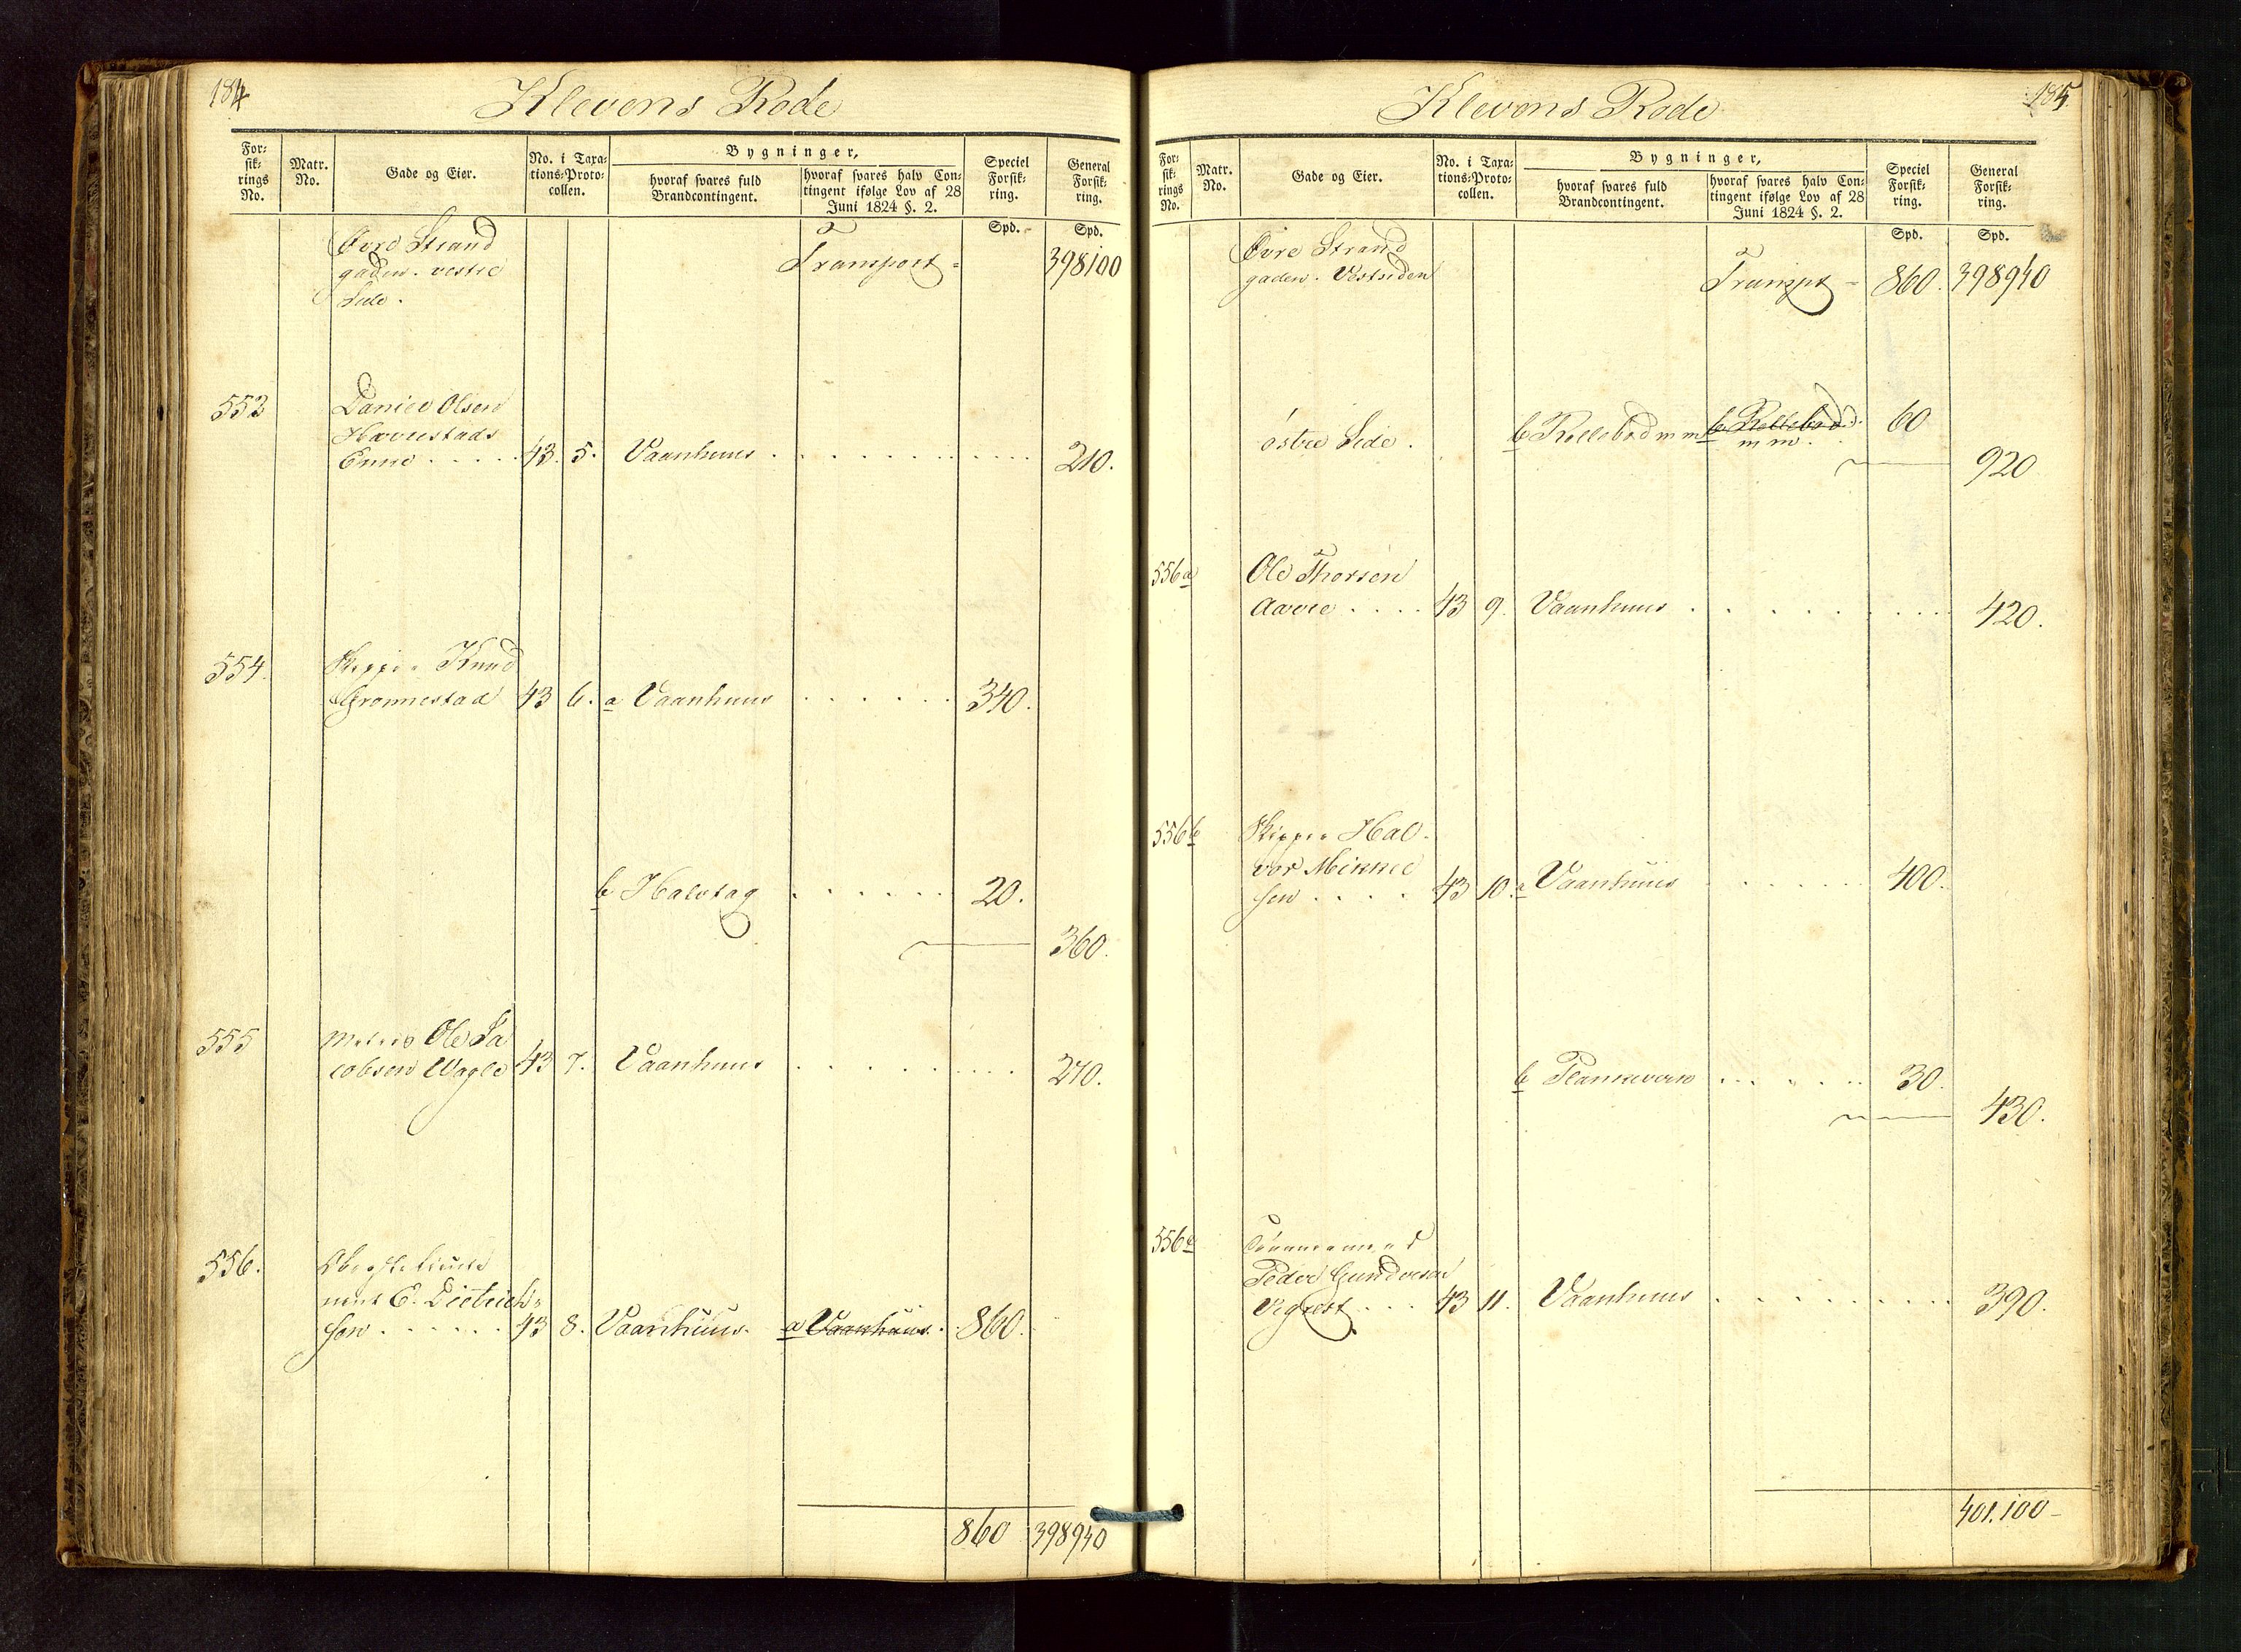 184
Klevens Rode
For-
sik-
rings
No.
Matr.
No.
Gade og Eier.
No. i Taxa-
tions-Proto-
collen.
Bygninger,
hvoraf svares fuld
Brandcontingent.
hvoraf svares halv Con-
tingent ifølge Lov af 28
Juni 1824 §. 2.
Speciel
Forsik-
ring.
General
Forsik-
ring.
Spd. Spd.
Øvre Strand
gaden. vestre
Side.
Transport 398100
553 Daniel Olsen
Haverstads
Enke . . . . 43. 5. Vaanhuus . . . . . . . . . . 210.
554. Skipper Knud
Grønnestad 43 6. a Vaanhuus . . . . . . 340.
b Halvtag . . . . . . 20.
360.
555 Ole Ja
cobsen Wagle 43 7. Vaanhuus . . . . . . . . 270.
556. Obristlieute
nant E. Dietrich-
sen . . . . . 43 8. Vaanhuus. a Vaanhuus . 860.
860 398940
185
Klevens Rode
For-
sik-
rings
No.
Matr.
No.
Gade og Eier.
No. i Taxa-
tions-Proto-
collen.
Bygninger,
hvoraf svares fuld
Brandcontingent.
hvoraf svares halv Con-
tingent ifølge Lov af 28
Juni 1824 §. 2.
Speciel
Forsik-
ring.
General
Forsik-
ring.
Spd. Spd.
Øvre Strand
gaden. Vestsiden
Transpt 860. 398940
østre Side. b Rollebod m m b Rollebod 60
m m.
920
556a Ole Thorsen
Aarre . . . . 43 9. Vaanhuus . . . . . . . . . 420.
556b Skipper Hal-
vor Mikkel
sen . . . . 43 10. a Vaanhuus . . . . . . 400.
b Plankeverk . . . . . . 30.
430.
556c Tømmermand
Peder Gundersen
Vigrest . . . 43 11. Vaanhuus . . . . . . . . . 390.
401.100